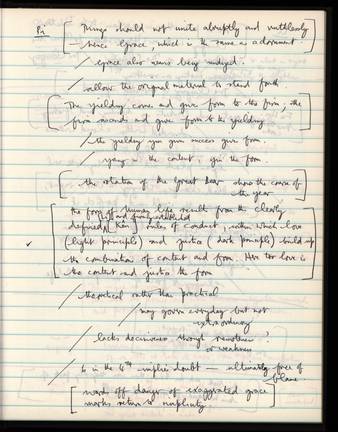 Pi [ Things should not unite abruptly and ruthlessly
— hence grace, which is the same as adornment.
/ Grace also means being undyed.
/ allow the original material to stand forth.
[ The yielding comes and gives form to the firm, the
firm ascends and gives form to the yielding
/ the yielding yin gives form.
/ yang is the content, yin the form.
[ the rotation of the Great Bear shows the course of
the year
the forms of human life result from the clearly
and firmly established
defined [ ] rules of conduct, within which love
✓ (light principle) and justice (dark principle) build up
the combination of content and form. Here too love is
the content and justice the form
/ theoretical rather than practical
/ may govern everyday but not
extraordinary
/ lacks decisiveness through remoteness?
or weakness
/ is in the 4th implies doubt — ultimately free of
blame
[ ward off danger of exaggerated grace
marks return to simplicity.